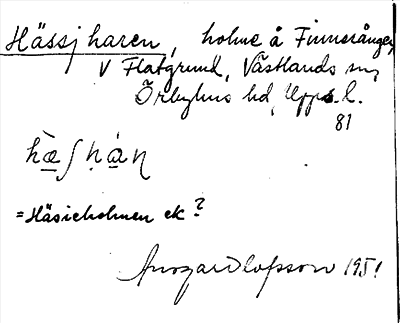 Hässjharen, holme å Finnsrånger,
V Flatgrund, Västlands sn,
Örbyhus hd, Upps. l.
81
hæ̀ʃhán
=Häsieholmen ek?
Olofsson 1951